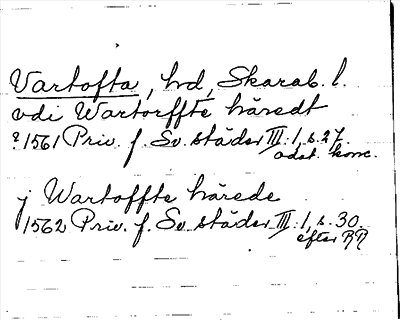 Vartofta, hd, Skarab. l.
vdi Wartorffte häredt
? 1561 Priv. f. Sv. städer III:1, s. 27
odat. konc.
j Wartoffte härede
1562 Priv. f. Sv. städer III:1, s. 30
efter RR